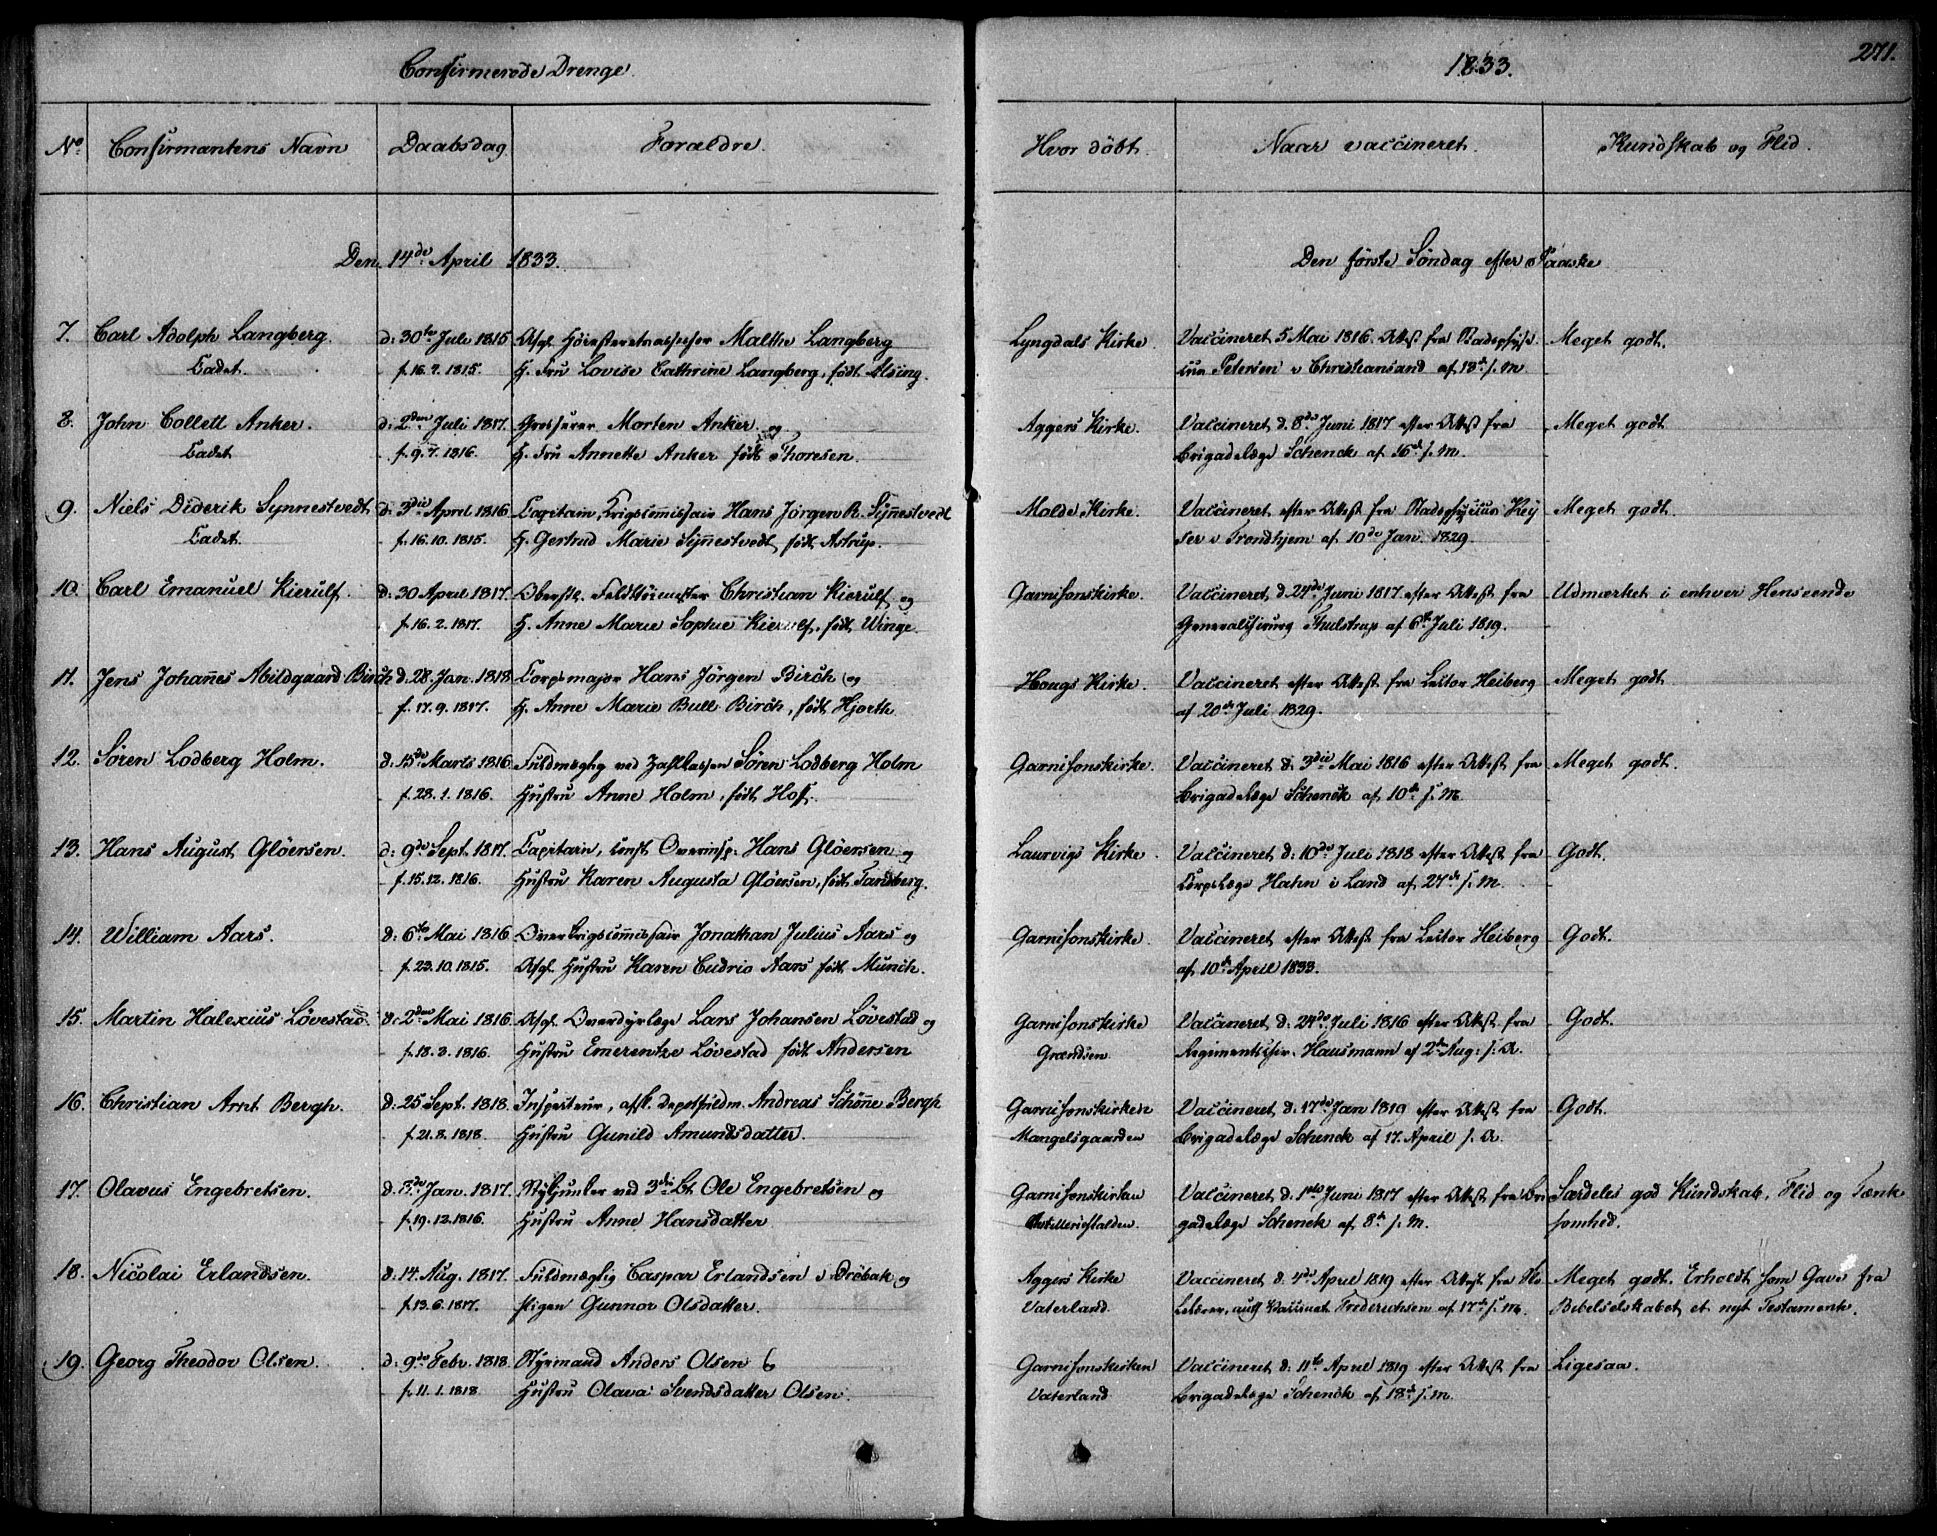 Confirmerede Drenge.
1833.
271.
No Confirmantens Navn Daabsdag Forældre. Hvor döbt. Naar vaccineret. Kundskab og Flid.
Den 14de April 1833. Den förste Söndag efter Paaske
7. Carl Adolph Langberg. d: 30te Juli 1815 Afgl. Höiesteretsassessor Malthe Langberg Lyngdals Kirke. Vaccineret 5 Mai 1816. Attest fra Stadsphysi- Meget godt.
Cadet. f. 16.7.1815. H. Fru Lovise Cathrine Langberg, født Alsing. cus Petersen i Christiansand af 13de s. M.
8. John Collett Anker. d: 2den Juli 1817. Grosserer Morten Anker og Aggers Kirke. Vaccineret d. 8de Juni 1817 efter Attest fra Meget godt.
Cadet f. 9.7.1816. H. Fru Annette Anker født Thoresen. Brigadelæge Schenck af 16de s. M.
9. Niels Diderik Synnestvedt d: 3die April 1816 Capitain, Krigscommissair Hans Jörgen R. Synnestvedt Molde Kirke. Vaccineret efter Attest fra Stadsphysicus Key Meget godt.
Cadet. f. 16.10.1815. H. Gertrud Marie Synnestvedt, født Astrup. ser i Trondhjem af 10de Jan. 1829.
10. Carl Emanuel Kierulf. d: 30 April 1817. Oberstl. Feldttöimester Christian Kierulf og Garnisonskirke. Vaccineret d. 24de Juni 1817. efter Attest fra Udmærket i enhver Henseende
f. 16.2.1817. H. Anne Marie Sophie Kierulf, født Winge. Generalchirurg Thulstrup af 6te Juli 1819.
11. Jens Johannes Abildgaard Birch d. 28 Jan. 1818 Corpsmajor Hans Jörgen Birch og Hougs Kirke. Vaccineret efter Attest fra Lector Heiberg Meget godt.
f. 17.9.1817. H. Anne Marie Bull Birch, født Hjorth af 20de Juli 1829.
12. Sören Lodberg Holm. d: 15de Marts 1816 Fuldmægtig ved Zahlkassen Sören Lodberg Holm Garnisonskirke. Vaccineret d: 3die Mai 1816 efter Attest fra Meget godt.
f. 28.1.1816. Hustru Anne Holm, født Hoff. Brigadelæge Schenck af 10de s. M.
13. Hans August Glöersen. d: 9de Sept. 1817. Capitain, const. Overinsp. Hans Glöersen og Laurvigs Kirke. Vaccineret d: 10de Juli 1818 efter Attest fra Godt.
f. 15.12.1816. Hustru Karen Augusta Glöersen, født Tandberg. Corpslæge Hahn i Land af 27de s. M.
14. William Aars. d: 6te Mai 1816 Overkrigscommissair Jonathan Julius Aars og Garnisonskirke. Vaccineret efter Attest fra Lector Heiberg Godt.
f. 23.10.1815. Afgl. Hustru Karen Cudrio Aars født Munch. af 10de April 1833.
15. Martin Halexius Lövestad. d: 2den Mai 1816 Afgl. Overdyrlæge Lars Johansen Lövestad og Garnisonskirke Vaccineret d: 24de Juli 1816 efter Attest fra Godt.
f. 13.3.1816. Hustru Emerentze Lövestad født Andersen Grændsen Regimentschir. Hausmann af 2den Aug: s. A.
16. Christian Arnt Bergh. d: 25 Sept. 1818. Inspecteur, afsk. Andreas Schöne Bergh Garnisonskirken Vaccineret d: 17de Jan 1819 efter Attest fra Godt.
f. 21.8.1818. Hustru Gunild Amundsdatter. Mangelsgaarden Brigadelæge Schenck af 17. April s. A.
17. Olavus Engebretsen. d. Jan. 1817. Stykjunker ved 3die Bt. Ole Engebretsen og Garnisonskirken Vaccineret d: 1ste Juni 1817 efter Attest fra Bri Særdeles god Kundskab, Flid og Tænk
f. 19.12.1816. Hustru Anne Hansdatter Artilleristalden. gadelæge Schenck af 8de s. M. somhed.
18. Nicolai Erlandsen. d: 14. Aug. 1817. Fuldmægtig Caspar Erlandsen i Dröbak og Aggers Kirke Vaccineret d. 4de April 1819 efter Attest fra Meget godt. Erholdt som Gave fra
f. 13.6.1817. Pigen Gunnor Olsdatter. Vaterland Frederichsen af 17de s. M. Bibelselskabet et nyt Testamente.
19. Georg Theodor Olsen. d: 9de Febr. 1818. Styrmand Anders Olsen Garnisonskirken Vaccineret d: 11te April 1819 efter Attest fra Ligesaa.
f. 11.1.1818 Hustru Olava Svendsdatter Olsen. Vaterland Brigadelæge Schenck af 18de s. M.